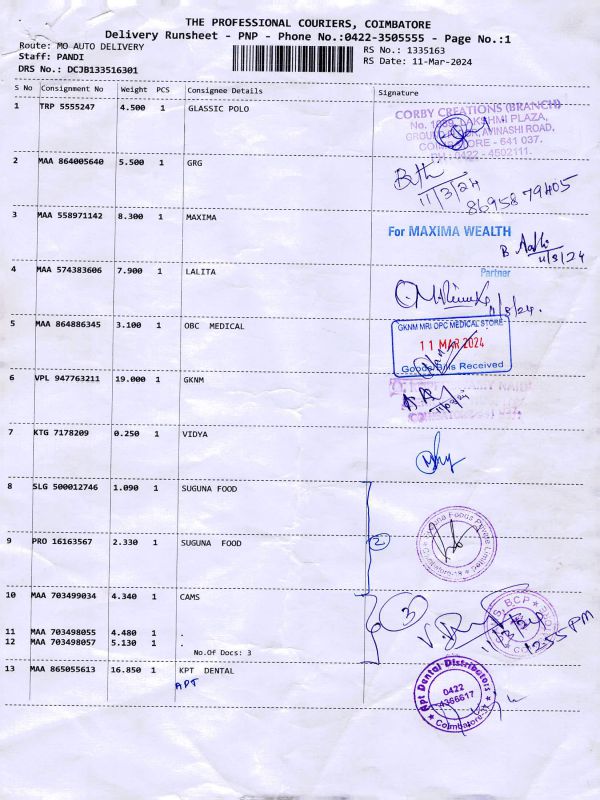 THE PROFESSIONAL COURIERS, COIMBATORE
Delivery Runsheet - PNP - Phone No.:0422-3505555 - Page No.:1
Route: MO AUTO DELIVERY
RS No.: 1335163
Staff: PANDI
RS Date: 11-Mar-2024
DRS No.: DCJB133516301
S No Consignment No Weight PCS Consignee Details Signature
1 TRP 5555247 4.500 1 GLASSIC POLO
CORBY CREATIONS (BRANCH)
PLAZA,
AVINASHI ROAD,
641 037.
4592111.
2 MAA 864005640 5.500 1 GRG
11/3/24
86958 79405
3 MAA 558971142 8.300 1 MAXIMA
For MAXIMA WEALTH
Partner
4 MAA 574383606 7.900 1 LALITA
5 MAA 864886345 3.100 1 OBC MEDICAL
GKNM MRI OPC MEDICAL STORE
11 MAR 2024
Goods/Bills Received
6 VPL 947763211 19.000 1 GKNM
7 KTG 7178209 0.250 1 VIDYA
8 SLG 500012746 1.090 1 SUGUNA FOOD
9 PRO 16163567 2.330 1 SUGUNA FOOD
2
10 MAA 703499034 4.340 1 CAMS
3
11 MAA 703498055 4.480 1 .
12 MAA 703498057 5.130 1 .
12:55 PM
No.Of Docs: 3
13 MAA 865055613 16.850 1 KPT DENTAL
APT
Apt Dental Distributors
0422
4366617
Coimbatore-37